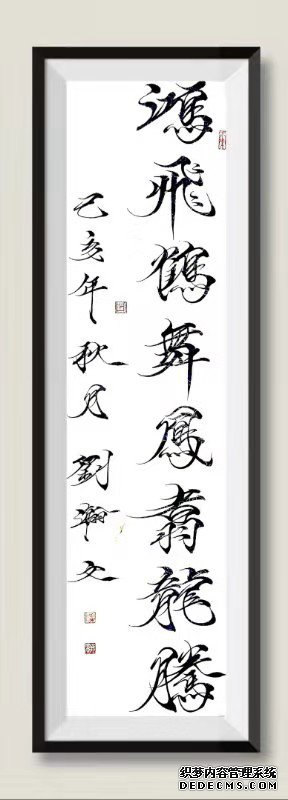 鴻飛鶴舞鳳翥龍騰
己亥年秋月劉瀚文
织梦内容管理系统
DEDECMS.COM